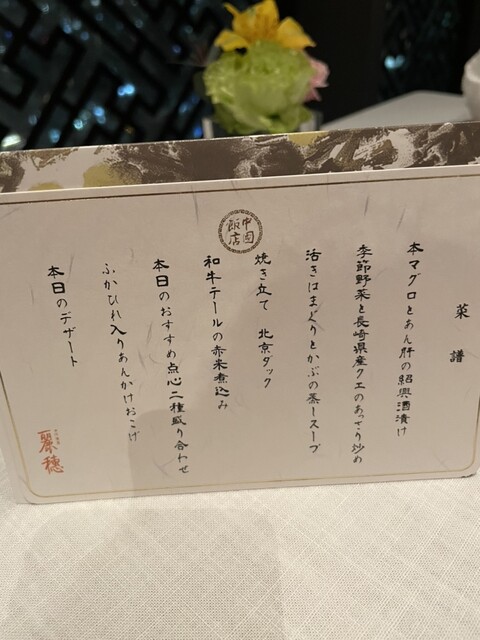 菜譜
本マグロとあん肝の紹興酒漬け
季節野菜と長崎県産クエのあっさり炒め
活きはまぐりとかぶの蒸しスープ
焼き立て 北京ダック
和牛テールの赤米煮込み
本日のおすすめ点心二種盛り合わせ
ふかひれ入りあんかけおこげ
本日のデザート
中国飯店
麗穂